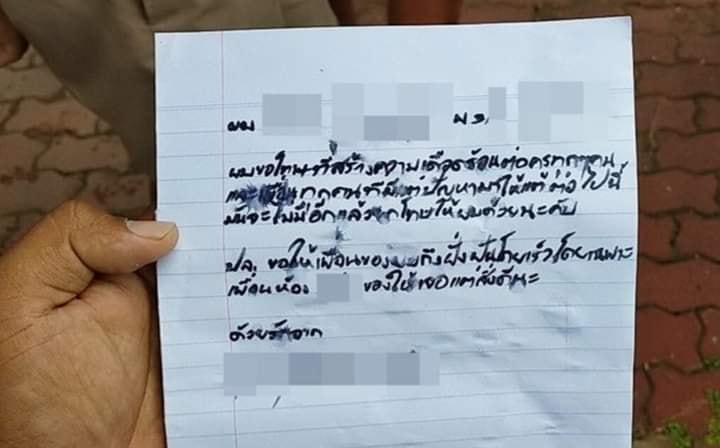 ผม ม 3/
ผมขอโทษที่สร้างความเดือดร้อนต่อครูทุกๆคน
และเพื่อนทุกคนที่มีแต่ปัญหามาให้แต่ต่อไปนี้
มันจะไม่มีอีกแล้ว โทษให้ผมด้วยนะคับ
ปล. ขอให้เพื่อนของผมถึงฝั่งฝันโดยเร็วโดยเฉพาะ
เพื่อนห้อง ขอให้เจอแต่สิ่งดีนะ
ด้วยรักจาก